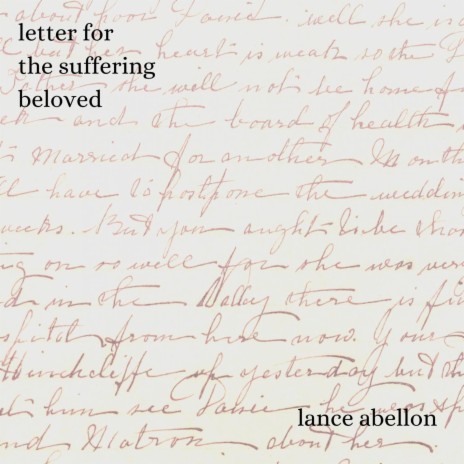 letter for
the suffering
beloved
about poor Daisie. well she is
but her heart is weak so the
Father she will not be home
and the board of health
married for another
have to postpone the wedding
weeks. But you aught to be
on so well for she was
in the Valley there is
from here now. Your
Hinchcliffe up yesterday but
him see Daisie he was
lance abellon
and Matron about her.